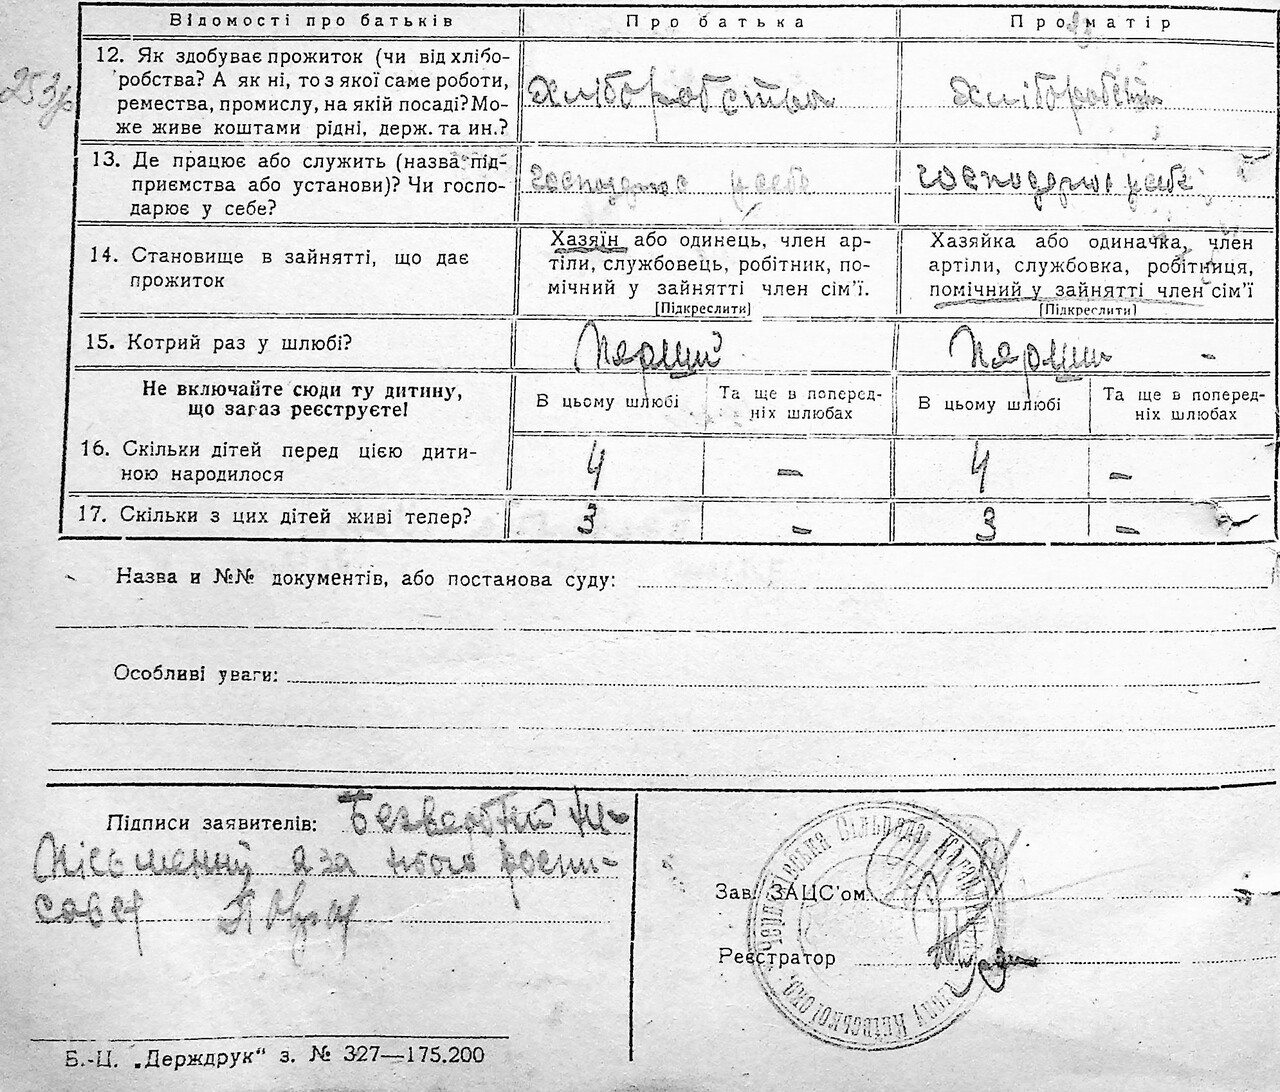 Відомості про батьків Про батька Про матір
253
12. Як здобуває прожиток (чи від хлібо-
робства? А як ні, то з якої саме роботи,
ремества, промислу, на якій посаді? Мо-
же живе коштами рідні, держ. та ин.?
хліборобство хліборобств
13. Де працює або служить (назва під-
приємства або установи)? Чи госпо-
дарює у себе?
господарює у себе господарює у себе
14. Становище в зайнятті, що дає
прожиток
Хазяїн або одинець, член ар-
тіли, службовець, робітник, по-
мічний у зайнятті член сім'ї.
[Підкреслити]
Хазяйка або одиначка, член
артіли, службовка, робітниця,
помічний у зайнятті член сім'ї
[Підкреслити]
15. Котрий раз у шлюбі? Перший Перший -
Не включайте сюди ту дитину,
що загаз реєструєте!
В цьому шлюбі Та ще в поперед-
ніх шлюбах В цьому шлюбі Та ще в поперед-
ніх шлюбах
16. Скільки дітей перед цією дити-
ною народилося
4 - 4 -
17. Скільки з цих дітей живі тепер? 3 - 3 -
Назва и №№ документів, або постанова суду:
Особливі уваги:
Підписи заявителів: Безверхий не-
письменний я за нього роспи-
совся
Зав. ЗАЦС'ом
Реєстратор
Б.-Ц. „Держдрук“ з. № 327—175.200